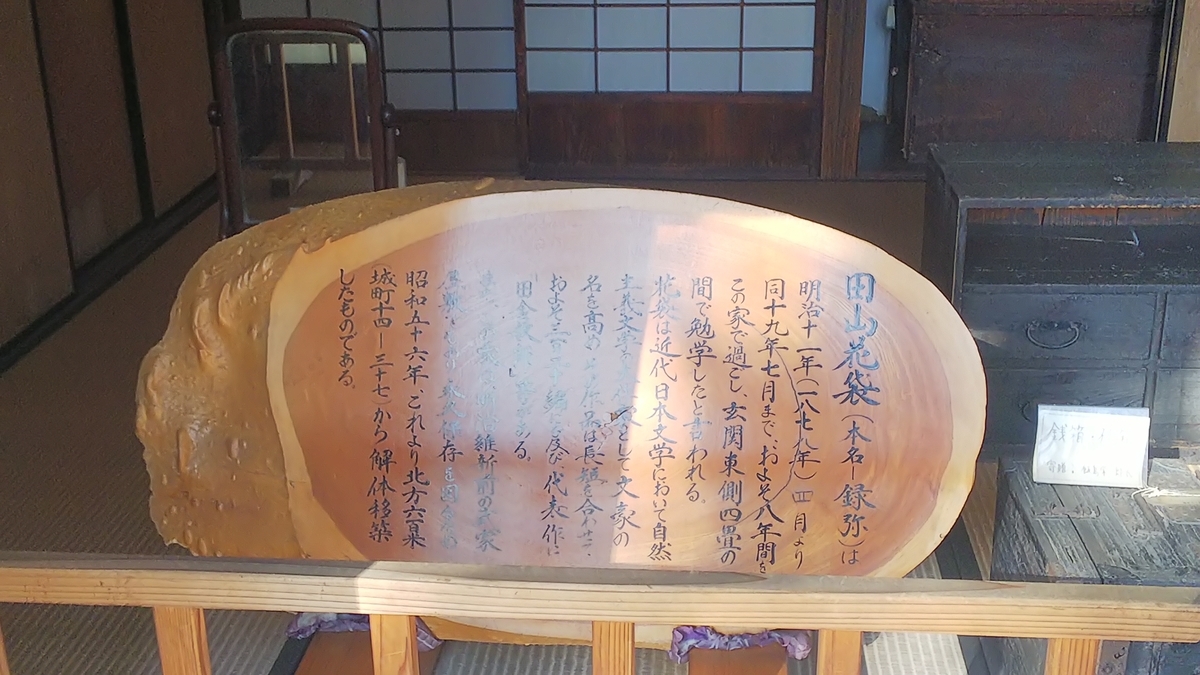 田山花袋(本名－録弥)は
明治十一年(一八七八年)四月より
同十九年七月まで、およそ八年間を
この家で過ごし、玄関東側四畳の
間で勉学したと言われる。
花袋は近代日本文学において自然
主義文学を 家として文豪の
名を高め、その作品は長短を合わせて、
およそ三 編に及び、代表作に
「田舎教師」等がある。
維新前の武家
永久保存を
昭和五十六年、これより北方六百
(城町十四－三十七)から解体移築
したものである。
銭箱